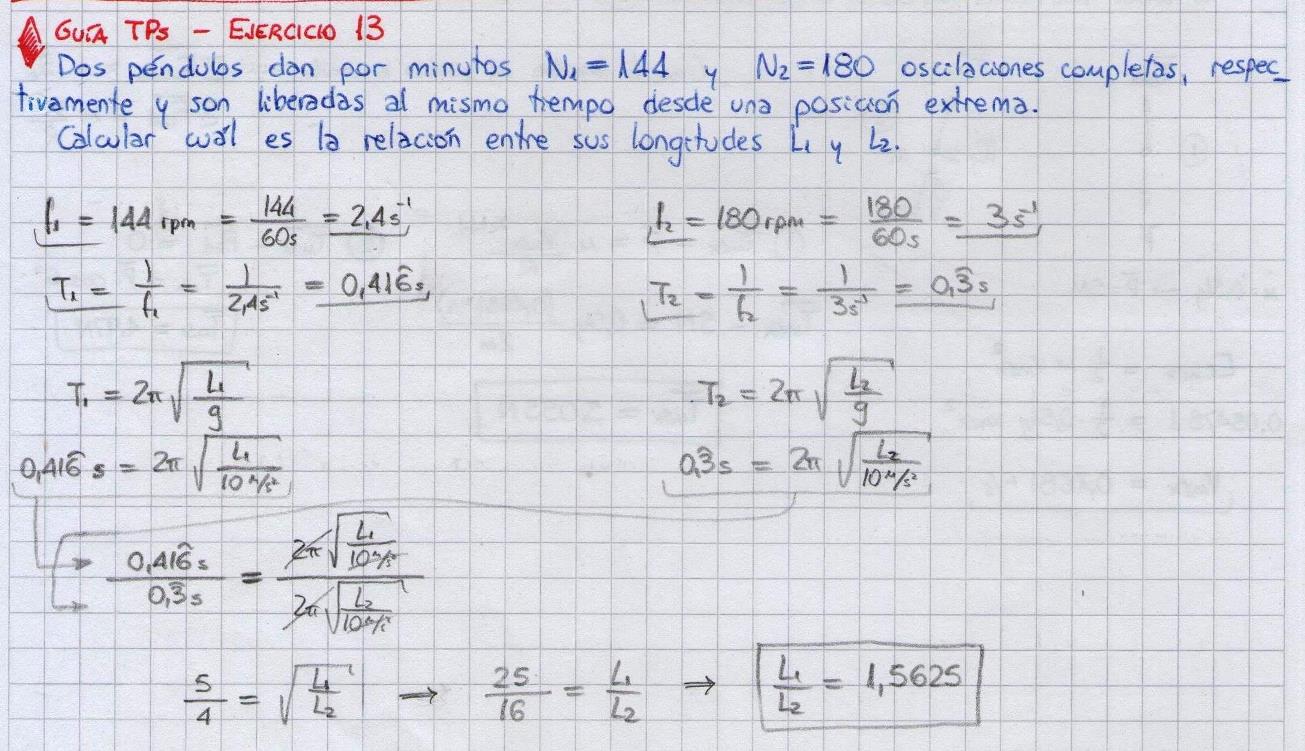 GUÍA TPs - EJERCICIO 13
Dos péndulos dan por minutos N₁ = 144 y N₂ = 180 oscilaciones completas, respec-
tivamente y son liberadas al mismo tiempo desde una posición extrema.
Calcular cuál es la relación entre sus longitudes L₁ y L₂.
f₁ = 144 rpm = 144/60s = 2,4 s⁻¹
f₂ = 180 rpm = 180/60s = 3 s⁻¹
T₁ = 1/f₁ = 1/2,4s⁻¹ = 0,416̂ s
T₂ = 1/f₂ = 1/3s⁻¹ = 0,3̂ s
T₁ = 2π √(L₁/g)
T₂ = 2π √(L₂/g)
0,416̂ s = 2π √(L₁/10 m/s²)
0,3̂ s = 2π √(L₂/10 m/s²)
0,416̂ s / 0,3̂ s = 2π √(L₁/10 m/s²) / 2π √(L₂/10 m/s²)
5/4 = √(L₁/L₂) → 25/16 = L₁/L₂ ⇒ L₁/L₂ = 1,5625